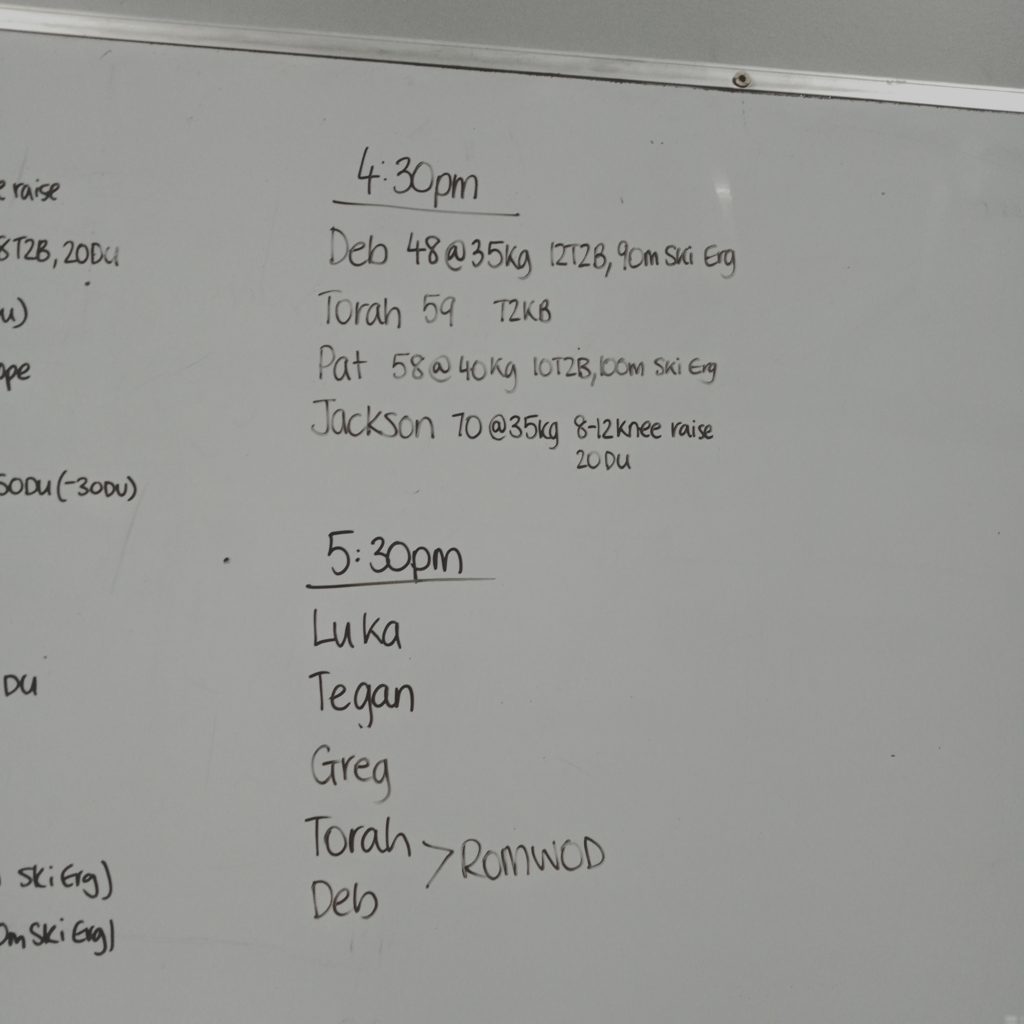 e raise
8T2B, 20DU
u)
ope
50DU (-30DU)
DU
Ski Erg)
0m Ski Erg)
4:30pm
Deb 48@35kg 12T2B, 90m Ski Erg
Torah 59 T2KB
Pat 58@40kg 10T2B, 100m Ski Erg
Jackson 70@35kg 8-12 knee raise
20 DU
5:30pm
Luka
Tegan
Greg
Torah
> ROMWOD
Deb